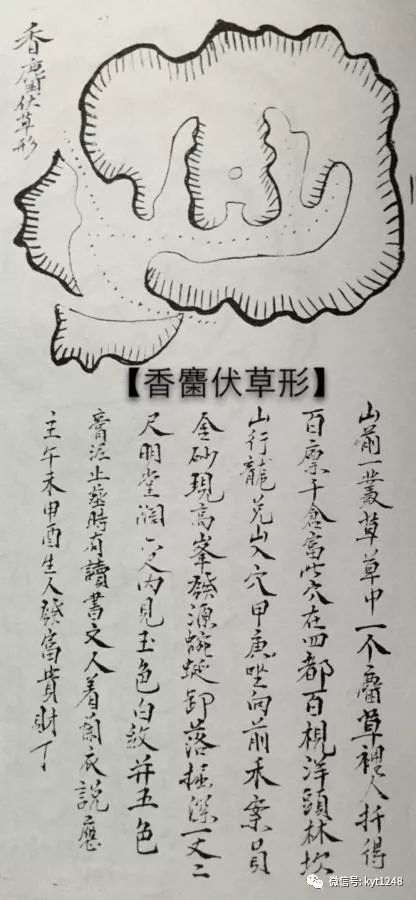 香麕伏草形
【香麕伏草形】
山前一叢草草中一个麝草裡人扦得
百廪千倉富此穴在四都百梘洋頭林坎
山行龍兑山入穴甲庚坐向前禾案員
金砂現高峯發源蜿蜒卸落掘深一丈二
尺明堂濶 内見玉色白紋并五色
泥止葬時有讀書文人着蘭衣說應
主午未申酉生人發富貴財丁
微信号: kyt1248